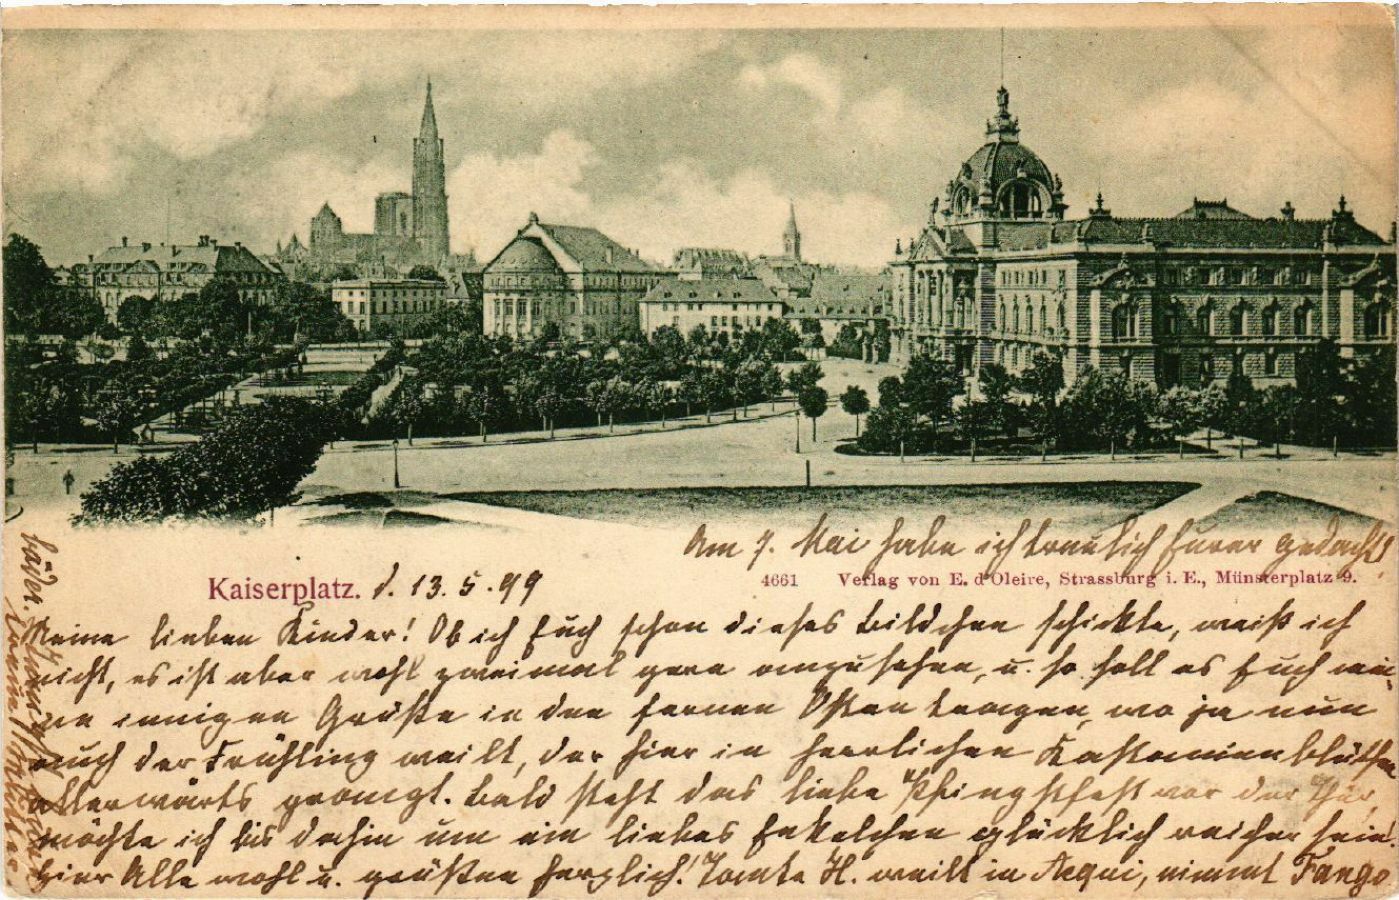 Am 7. Mai habe ich treulich Eurer gedacht!
Kaiserplatz. d. 13.5.99
4661 Verlag von E. d'Oleire, Strassburg i. E., Münsterplatz 9.
Meine lieben Kinder! Ob ich Euch schon dieses Bildchen schickte, weiß ich
nicht, es ist aber wohl zweimal gern anzusehen, u. so soll es Euch mei-
nen innigen Grüße in den fernen Osten tragen, wo ja nun
auch der Frühling weilt, der hier in herrlichen Kastanienblüthen
allerwärts prangt. Bald steht das liebe Pfingstfest vor der Thür,
möchte ich bis dahin um ein liebes Enkelchen glücklich reicher sein.
Hier Alle wohl u. grüßen herzlich! Tante H. weilt in Acqui, nimmt Fango
bäder.